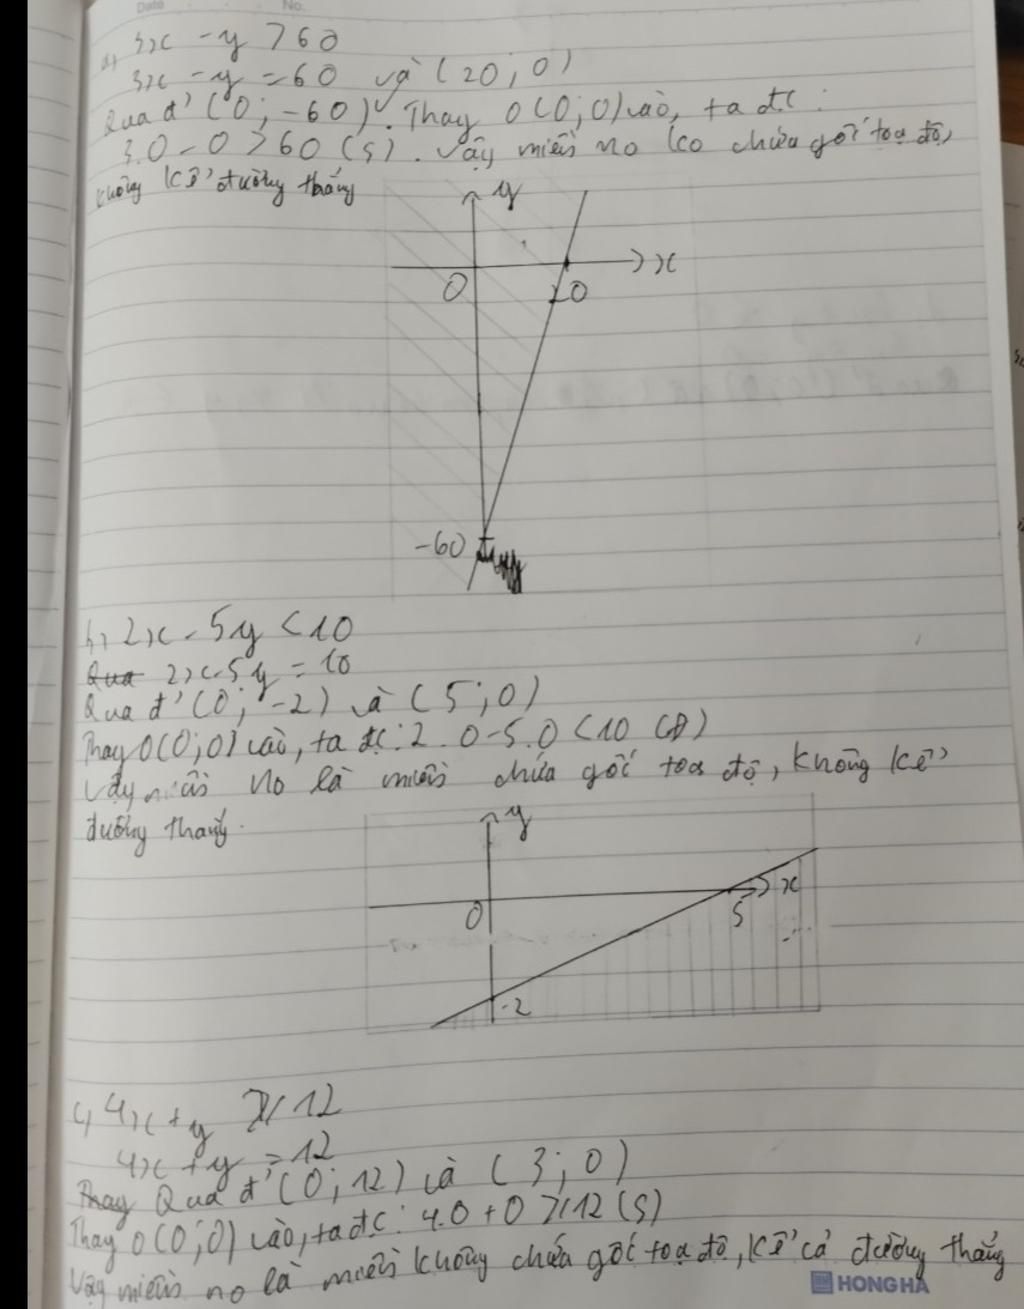 Date No.
a, 3x - y > 60
3x - y = 60 và (20; 0)
Qua đ' (0; -60). Thay O(0; 0) vào, ta đc:
3.0 - 0 > 60 (S). Vậy miền no ko chứa gốc toạ độ,
không kể đường thẳng
y
x
O
20
-60
b, 2x - 5y < 10
2x - 5y = 10
Qua đ' (0; -2) và (5; 0)
Thay O(0; 0) vào, ta đc: 2.0 - 5.0 < 10 (Đ)
Vậy miền no là miền chứa gốc toạ độ, không kể
đường thẳng.
y
x
O
5
-2
c, 4x + y ≥ 12
4x + y = 12
Qua đ' (0; 12) và (3; 0)
Thay O(0; 0) vào, ta đc: 4.0 + 0 ≥ 12 (S)
Vậy miền no là miền không chứa gốc toạ độ, kể cả đường thẳng
HONG HA